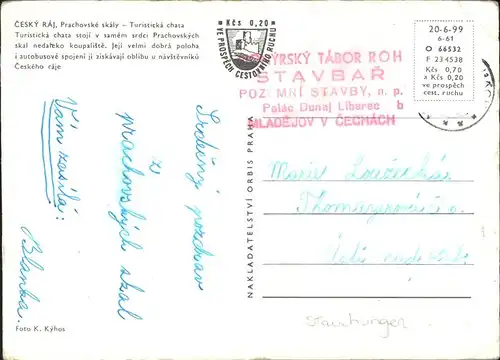 ČESKÝ RÁJ, Prachovské skály – Turistická chata
Turistická chata stojí v samém srdci Prachovských
skal nedařeko koupaliště. Její velmi dobrá poloha
i autobusové spojení ji získávají oblibu u návštěvníků
Českého ráje
Kčs 0,20
VE PROSPĚCH CESTOVNÍHO RUCHU
TÁBOR ROH
STAVBAŘ
POZEMNÍ STAVBY, n. p.
Palác Dunaj Liberec b
MLADĚJOV V ČECHÁCH
20-6-99
6-61
O 66532
F 234538
Kčs 0,70
a Kčs 0,20
ve prospěch
cest. ruchu
Srdečný pozdrav
z
prachovských skal
Vám zasílá:
Blanka.
NAKLADATELSTVÍ ORBIS PRAHA
Marie
Ústí nad
Stauchungen
Foto K. Kýhos